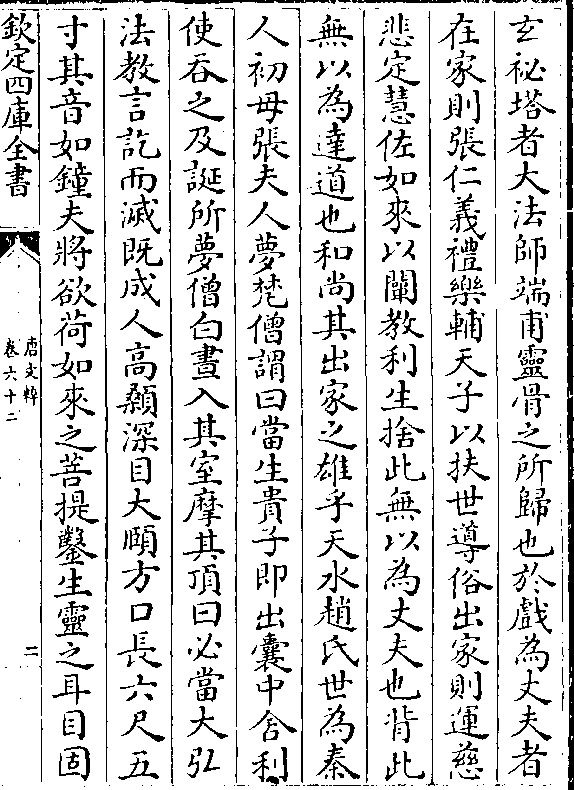 玄祕塔者大法師端甫靈骨之所歸也於戲為丈夫者
在家則張仁義禮樂輔天子以扶世導俗出家則運慈
悲定慧佐如來以闡教利生捨此無以為丈夫也背此
無以為達道也和尚其出家之雄乎天水趙氏世為秦
人初母張夫人夢梵僧謂曰當生貴子即出囊中舍利
使吞之及誕所夢僧白晝入其室摩其頂曰必當大弘
法教言訖而滅既成人高顙深目大頤方口長六尺五
寸其音如鐘夫將欲荷如來之菩提鑿生靈之耳目固
欽定四庫全書
唐文粹
卷六十二
二